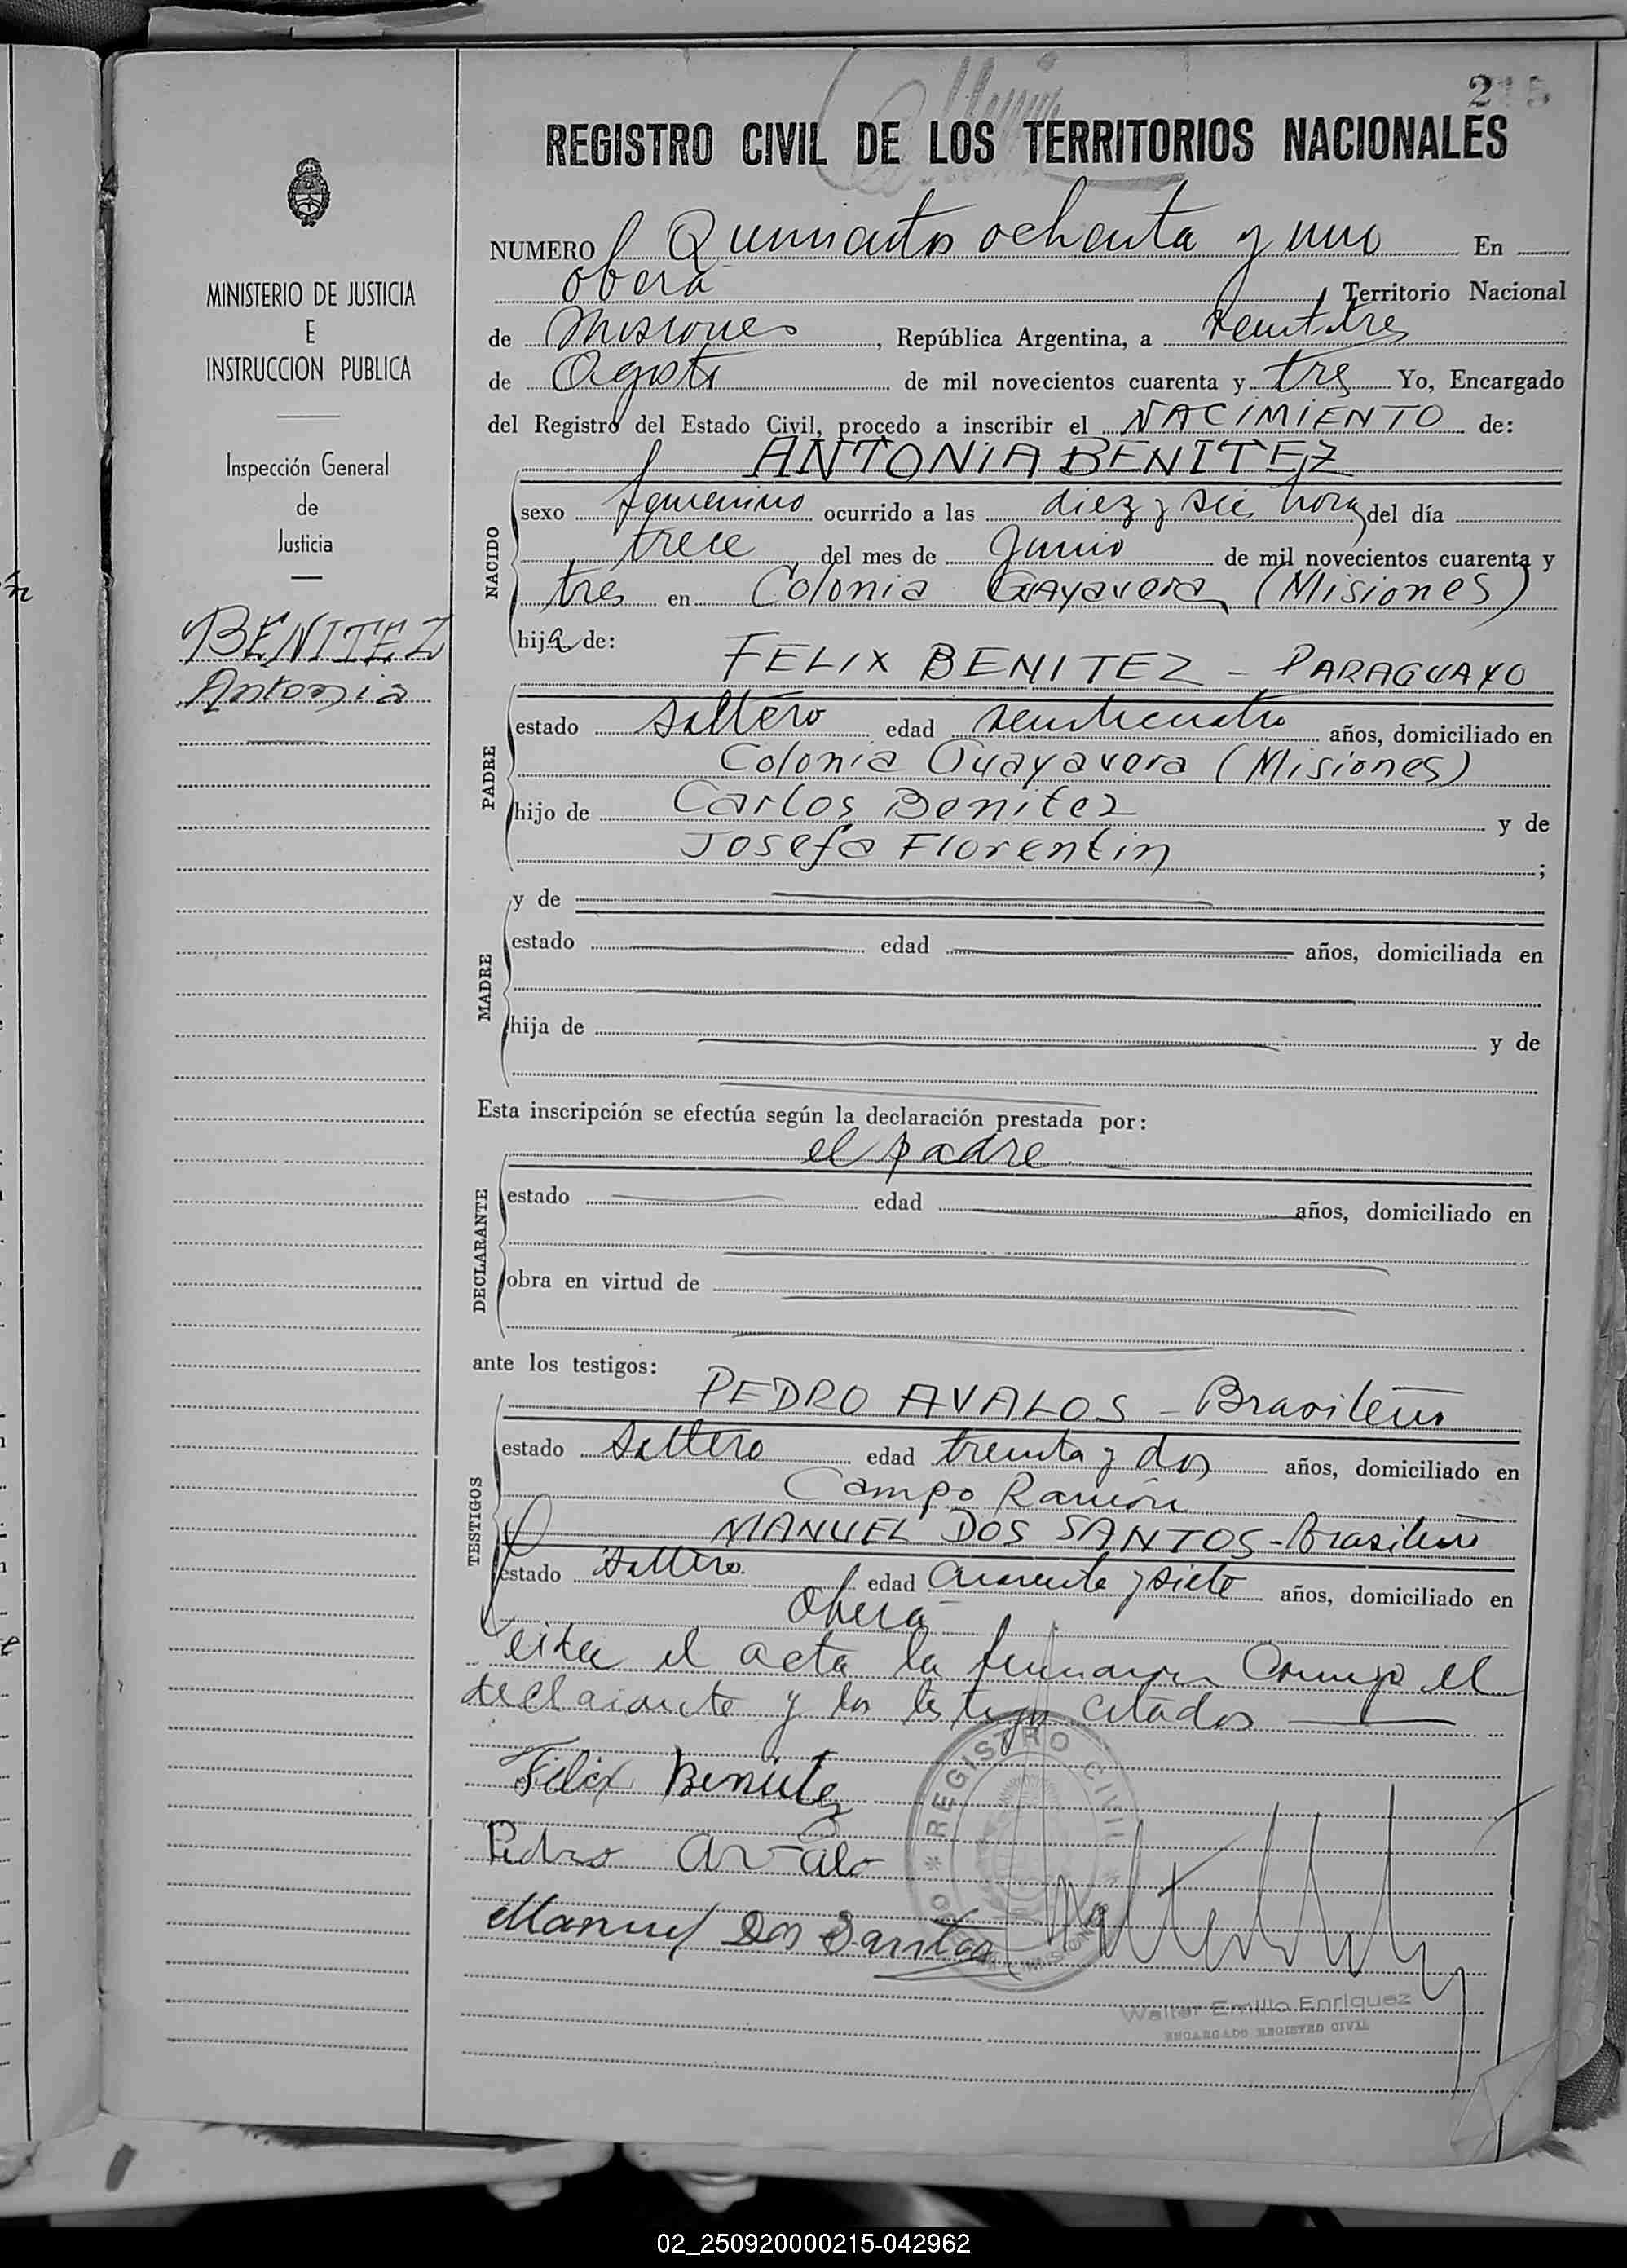 215
REGISTRO CIVIL DE LOS TERRITORIOS NACIONALES
MINISTERIO DE JUSTICIA
E
INSTRUCCION PUBLICA
Inspección General
de
Justicia
BENITEZ
Antonia
NUMERO Quinientos ochenta y uno En
Oberá, Territorio Nacional
de Misiones, República Argentina, a veintitres
de Agosto de mil novecientos cuarenta y tres Yo, Encargado
del Registro del Estado Civil, procedo a inscribir el NACIMIENTO de:
ANTONIA BENITEZ
NACIDO
sexo femenino ocurrido a las diez y seis horas del día
trece del mes de Junio de mil novecientos cuarenta y
tres en Colonia Guayavera (Misiones)
hija de:
FELIX BENITEZ - PARAGUAYO
PADRE
estado soltero edad veinticuatro años, domiciliado en
Colonia Guayavera (Misiones)
hijo de Carlos Benitez y de
Josefa Florentin ;
MADRE
y de
estado edad años, domiciliada en
hija de y de
Esta inscripción se efectúa según la declaración prestada por:
el padre
DECLARANTE
estado edad años, domiciliado en
obra en virtud de
ante los testigos:
TESTIGOS
PEDRO AVALOS - Brasileño
estado soltero edad treinta y dos años, domiciliado en
Campo Ramón
MANUEL DOS SANTOS - Brasileño
estado soltero edad cuarenta y siete años, domiciliado en
Oberá
el acta la firmaron conmigo el
declarante y los testigos citados
Felix Benitez
Pedro Avalo
Manuel Dos Santos
REGISTRO CIVIL
MISIONES
Walter Emilio Enriquez
ENCARGADO REGISTRO CIVIL
02_250920000215-042962